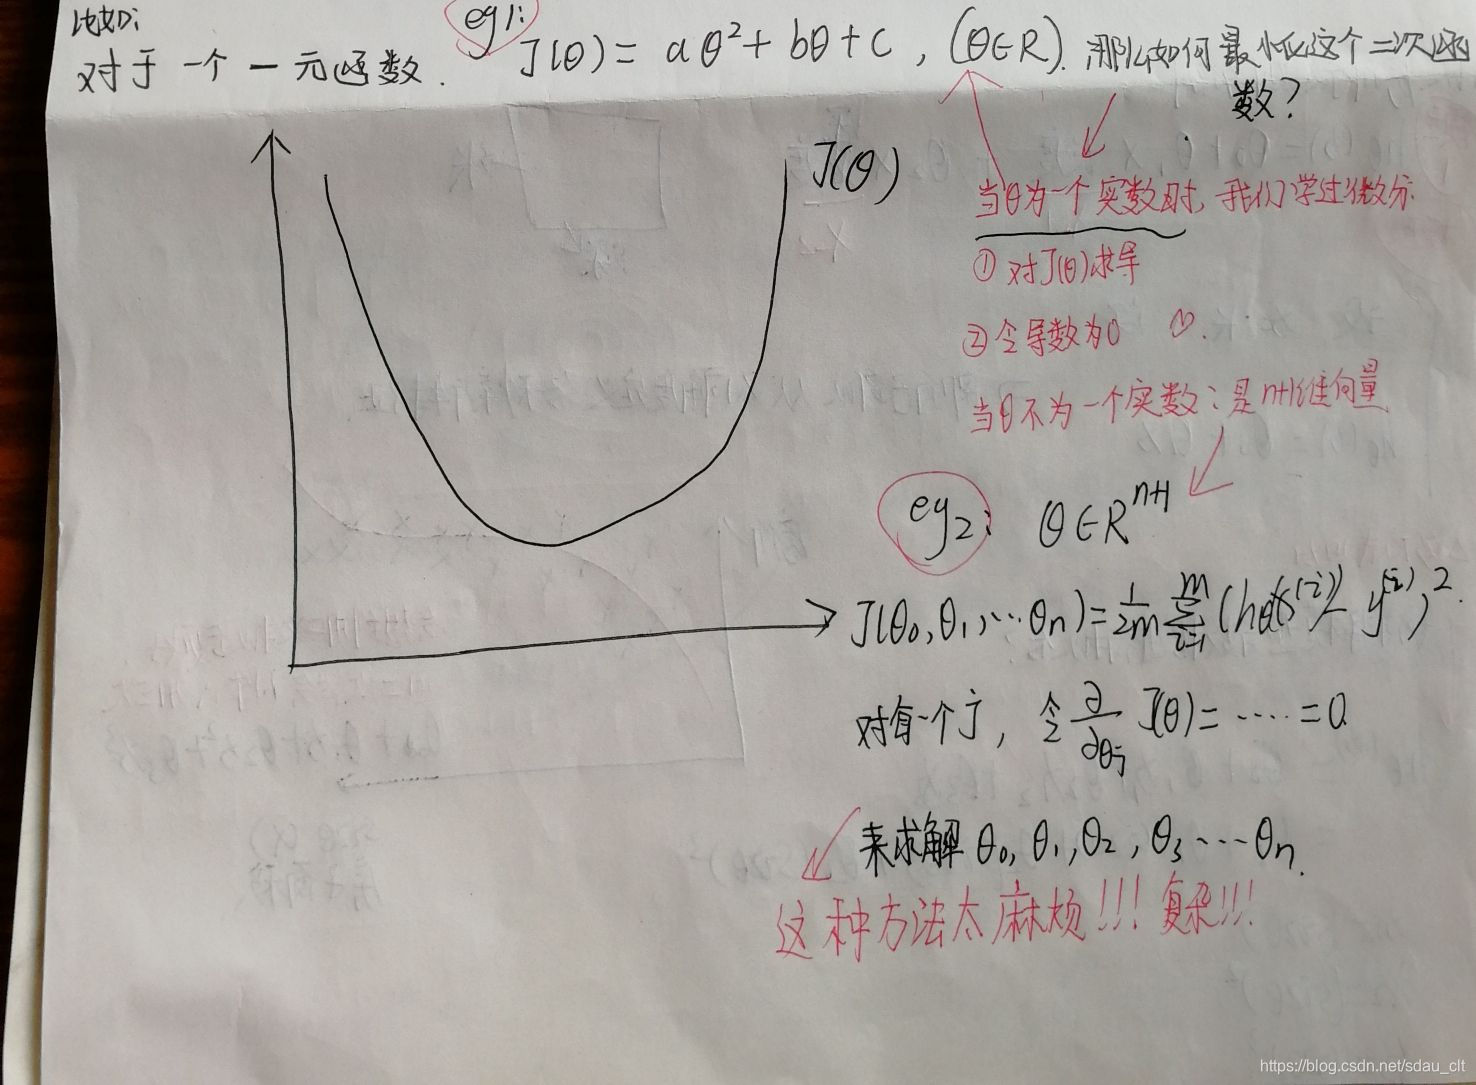 比如:
对于一个一元函数. eg1: J(θ) = aθ²+bθ+c , (θ∈R). 那么如何最小化这个二次函
数?
J(θ)
当θ为一个实数时, 我们学过微分
① 对J(θ)求导
② 令导数为0
当θ不为一个实数: 是n+1维向量
eg2: θ∈Rⁿ⁺¹
J(θ₀,θ₁,···θn) = 1/2m Σ(i=1 → m) (hθ(x⁽ⁱ⁾) - y⁽ⁱ⁾)².
对有一个j, 令 ∂/∂θj J(θ) = ····· = 0
来求解 θ₀, θ₁, θ₂, θ₃ ··· θn.
这种方法太麻烦!!! 复杂!!!
https://blog.csdn.net/sdau_clt